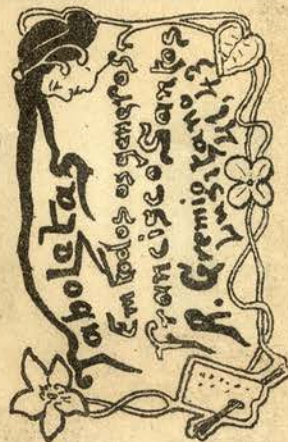 Taboletas
Em todos os generos
Francisco Santos
Gremio